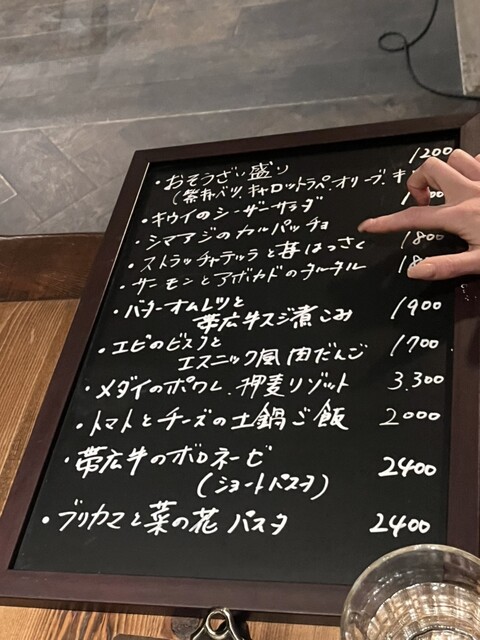 ・おそうざい盛り 1200
(紫キャベツ、キャロットラペ、オリーブ、キ
・キウイのシーザーサラダ
・シマアジのカルパッチョ
・ストラッチャテッラと苺はっさく 1800
・サーモンとアボカドのタルタル
・バターオムレツと
帯広牛スジ煮こみ 1900
・エビのビスクと
エスニック風肉だんご 1700
・メダイのポワレ、押麦リゾット 3.300
・トマトとチーズの土鍋ご飯 2000
・帯広牛のボロネーゼ
(ショートパスタ) 2400
・ブリカマと菜の花パスタ 2400